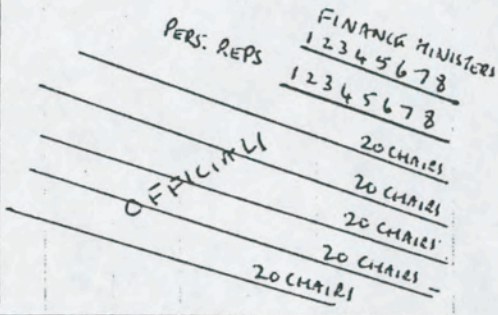 FINANCE MINISTERS
1 2 3 4 5 6 7 8
PERS. REPS
1 2 3 4 5 6 7 8
20 CHAIRS
20 CHAIRS
20 CHAIRS
OFFICIALS
20 CHAIRS
20 CHAIRS